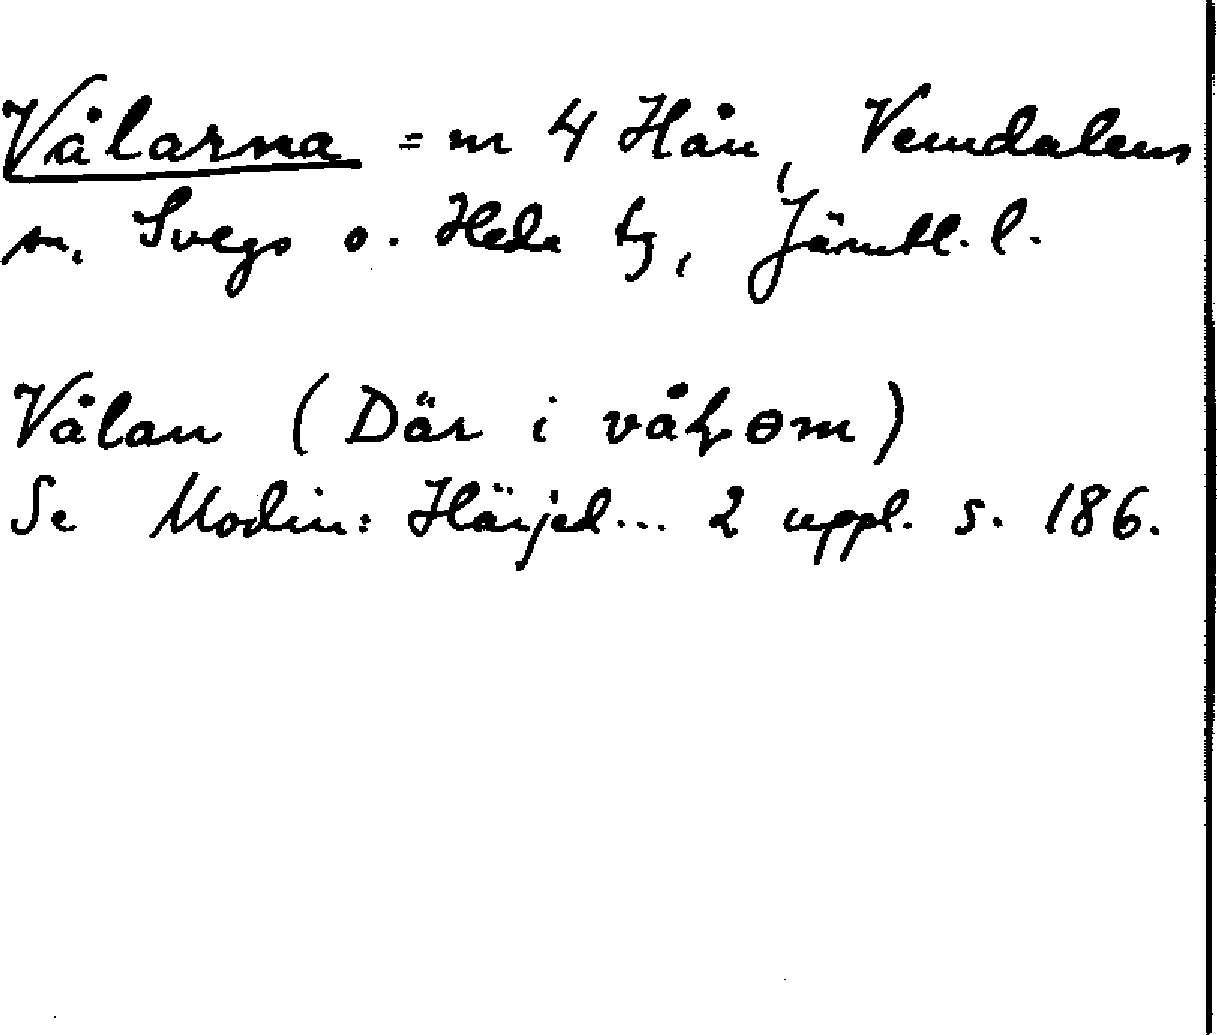 Vålarna = m 4 Hån, Vemdalens
sn. Svegs o. Hede tg, Jämtl. l.
Vålan (Där i våḷom)
Se Modin: Härjed... 2 uppl. s. 186.